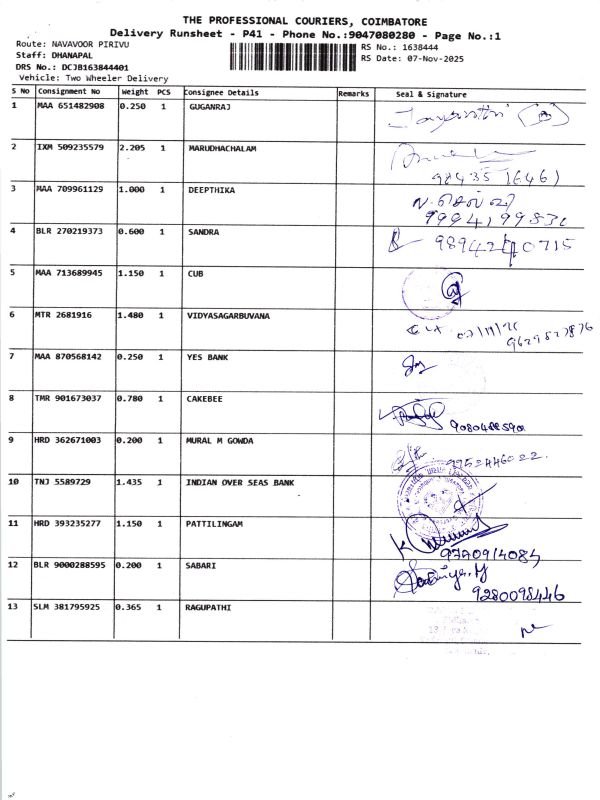 THE PROFESSIONAL COURIERS, COIMBATORE
Delivery Runsheet - P41 - Phone No.:9047080280 - Page No.:1
Route: NAVAVOOR PIRIVU
Staff: DHANAPAL
DRS No.: DCJB163844401
Vehicle: Two Wheeler Delivery
RS No.: 1638444
RS Date: 07-Nov-2025
S No Consignment No Weight PCS Consignee Details Remarks Seal & Signature
1 MAA 651482908 0.250 1 GUGANRAJ
2 IXM 509235579 2.205 1 MARUDHACHALAM
3 MAA 709961129 1.000 1 DEEPTHIKA
4 BLR 270219373 0.600 1 SANDRA
5 MAA 713689945 1.150 1 CUB
6 MTR 2681916 1.480 1 VIDYASAGARBUVANA
7 MAA 870568142 0.250 1 YES BANK
8 TMR 901673037 0.780 1 CAKEBEE
9 HRD 362671003 0.200 1 MURAL M GOWDA
9952446022.
10 TNJ 5589729 1.435 1 INDIAN OVER SEAS BANK
11 HRD 393235277 1.150 1 PATTILINGAM
12 BLR 9000288595 0.200 1 SABARI
9280098446
13 SLM 381795925 0.365 1 RAGUPATHI